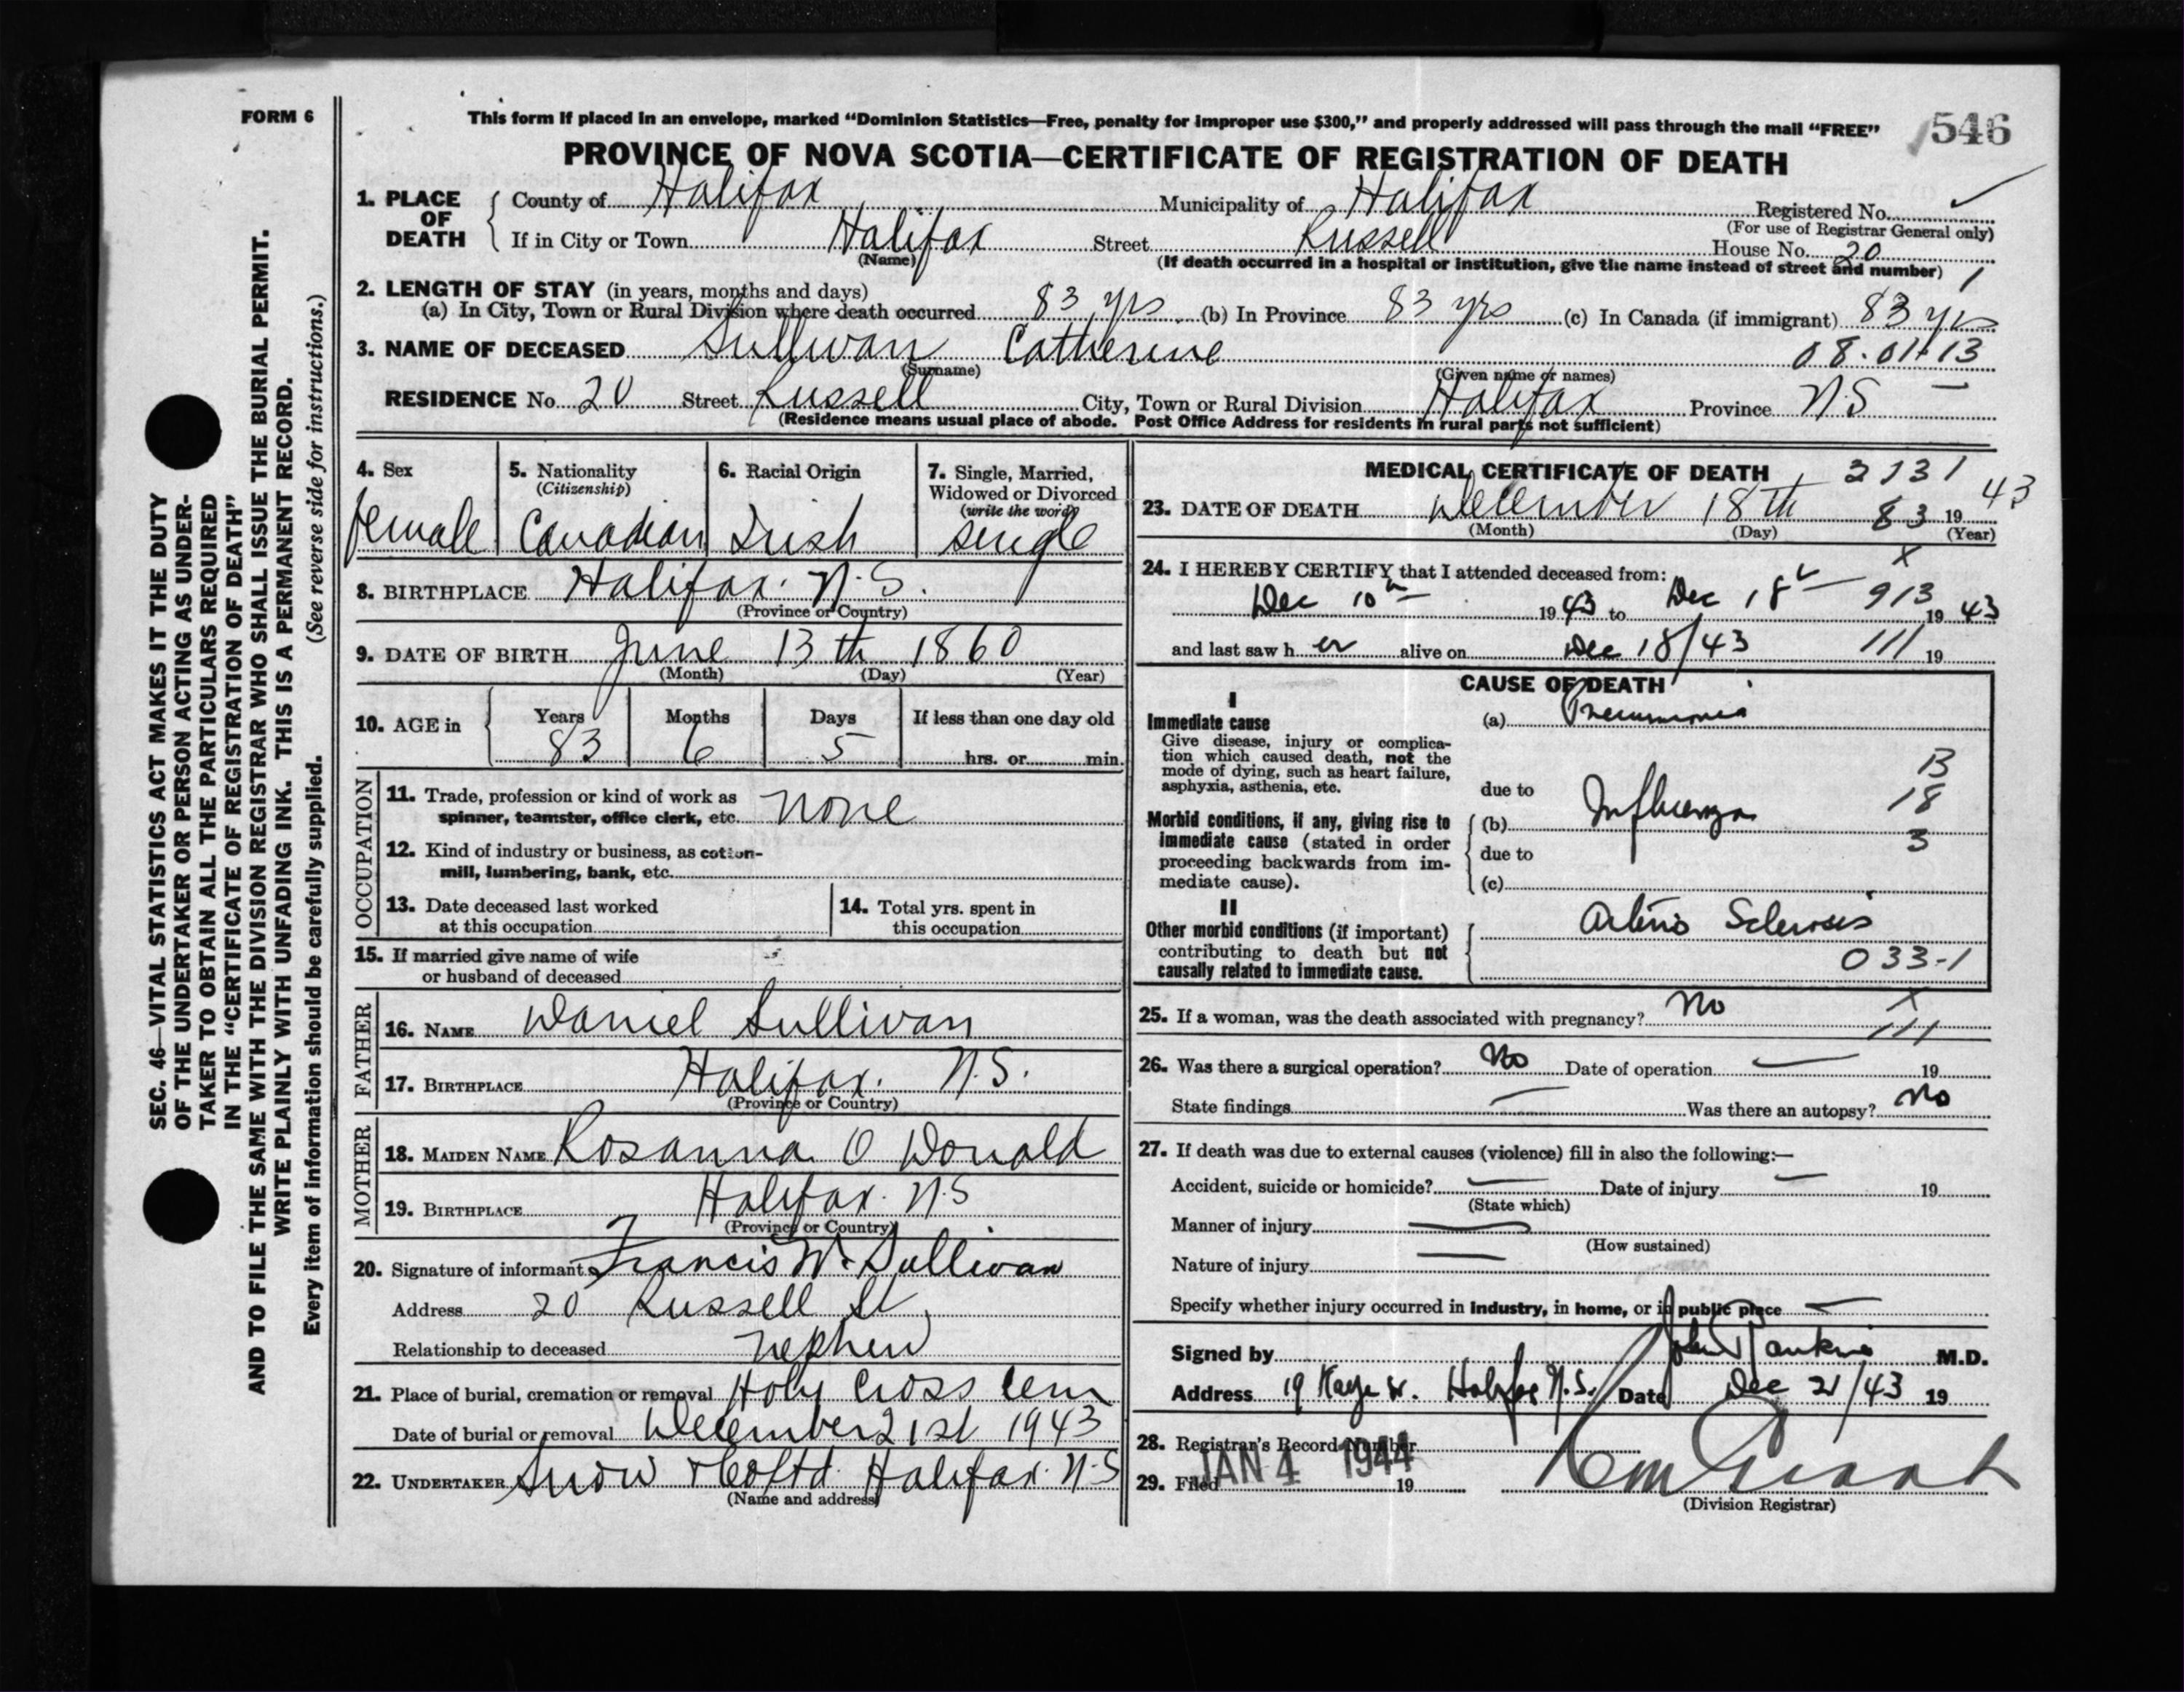 FORM 6
This form if placed in an envelope, marked “Dominion Statistics—Free, penalty for improper use $300,” and properly addressed will pass through the mail “FREE”
546
PROVINCE OF NOVA SCOTIA—CERTIFICATE OF REGISTRATION OF DEATH
1. PLACE OF DEATH
County of Halifax Municipality of Halifax Registered No.
(For use of Registrar General only)
If in City or Town Halifax Street Russell House No. 20
(Name)
(If death occurred in a hospital or institution, give the name instead of street and number) 1
2. LENGTH OF STAY (in years, months and days)
(a) In City, Town or Rural Division where death occurred 83 yrs (b) In Province 83 yrs (c) In Canada (if immigrant) 83 yrs
3. NAME OF DECEASED Sullivan Catherine 08.01.13
(Surname) (Given name or names)
RESIDENCE No. 20 Street Russell City, Town or Rural Division Halifax Province N.S
(Residence means usual place of abode. Post Office Address for residents in rural parts not sufficient)
4. Sex
female
5. Nationality
(Citizenship)
Canadian
6. Racial Origin
Irish
7. Single, Married,
Widowed or Divorced
(write the word)
single
8. BIRTHPLACE Halifax. N.S.
(Province or Country)
9. DATE OF BIRTH June 13th 1860
(Month) (Day) (Year)
10. AGE in
Years Months Days If less than one day old
83 6 5 hrs. or min.
OCCUPATION
11. Trade, profession or kind of work as
spinner, teamster, office clerk, etc. None
12. Kind of industry or business, as cotton-
mill, lumbering, bank, etc.
13. Date deceased last worked
at this occupation
14. Total yrs. spent in
this occupation
15. If married give name of wife
or husband of deceased
FATHER
16. NAME Daniel Sullivan
17. BIRTHPLACE Halifax. N.S.
(Province or Country)
MOTHER
18. MAIDEN NAME Rosanna O Donald
19. BIRTHPLACE Halifax. N.S
(Province or Country)
20. Signature of informant Francis W. Sullivan
Address 20 Russell St.
Relationship to deceased nephew
21. Place of burial, cremation or removal Holy Cross Cem
Date of burial or removal December 21st 1943
22. UNDERTAKER Snow & Co Ltd. Halifax. N.S
(Name and address)
MEDICAL CERTIFICATE OF DEATH 2131
23. DATE OF DEATH December 18th 83 19 43
(Month) (Day) (Year)
24. I HEREBY CERTIFY that I attended deceased from: X
Dec 10th 1943 to Dec 18th 913 19 43
and last saw her alive on Dec 18/43 111 19
CAUSE OF DEATH
I
Immediate cause
Give disease, injury or complica-
tion which caused death, not the
mode of dying, such as heart failure,
asphyxia, asthenia, etc.
(a) Pneumonia
due to
13
18
3
Morbid conditions, if any, giving rise to
immediate cause (stated in order
proceeding backwards from im-
mediate cause).
(b) Influenza
due to
(c)
II
Other morbid conditions (if important)
contributing to death but not
causally related to immediate cause.
Arterio Sclerosis
033-1
25. If a woman, was the death associated with pregnancy? No X
111
26. Was there a surgical operation? No Date of operation — 19
State findings — Was there an autopsy? No
27. If death was due to external causes (violence) fill in also the following:—
Accident, suicide or homicide? — Date of injury — 19
(State which)
Manner of injury —
(How sustained)
Nature of injury —
Specify whether injury occurred in industry, in home, or in public place —
Signed by John Rankine M.D.
Address 19 Kaye St. Halifax N.S. Date Dec 21/43 19
28. Registrar's Record Number
29. Filed JAN 4 1944 19
(Division Registrar)
SEC. 46—VITAL STATISTICS ACT MAKES IT THE DUTY
OF THE UNDERTAKER OR PERSON ACTING AS UNDER-
TAKER TO OBTAIN ALL THE PARTICULARS REQUIRED
IN THE “CERTIFICATE OF REGISTRATION OF DEATH”
AND TO FILE THE SAME WITH THE DIVISION REGISTRAR WHO SHALL ISSUE THE BURIAL PERMIT.
WRITE PLAINLY WITH UNFADING INK. THIS IS A PERMANENT RECORD.
Every item of information should be carefully supplied. (See reverse side for instructions.)